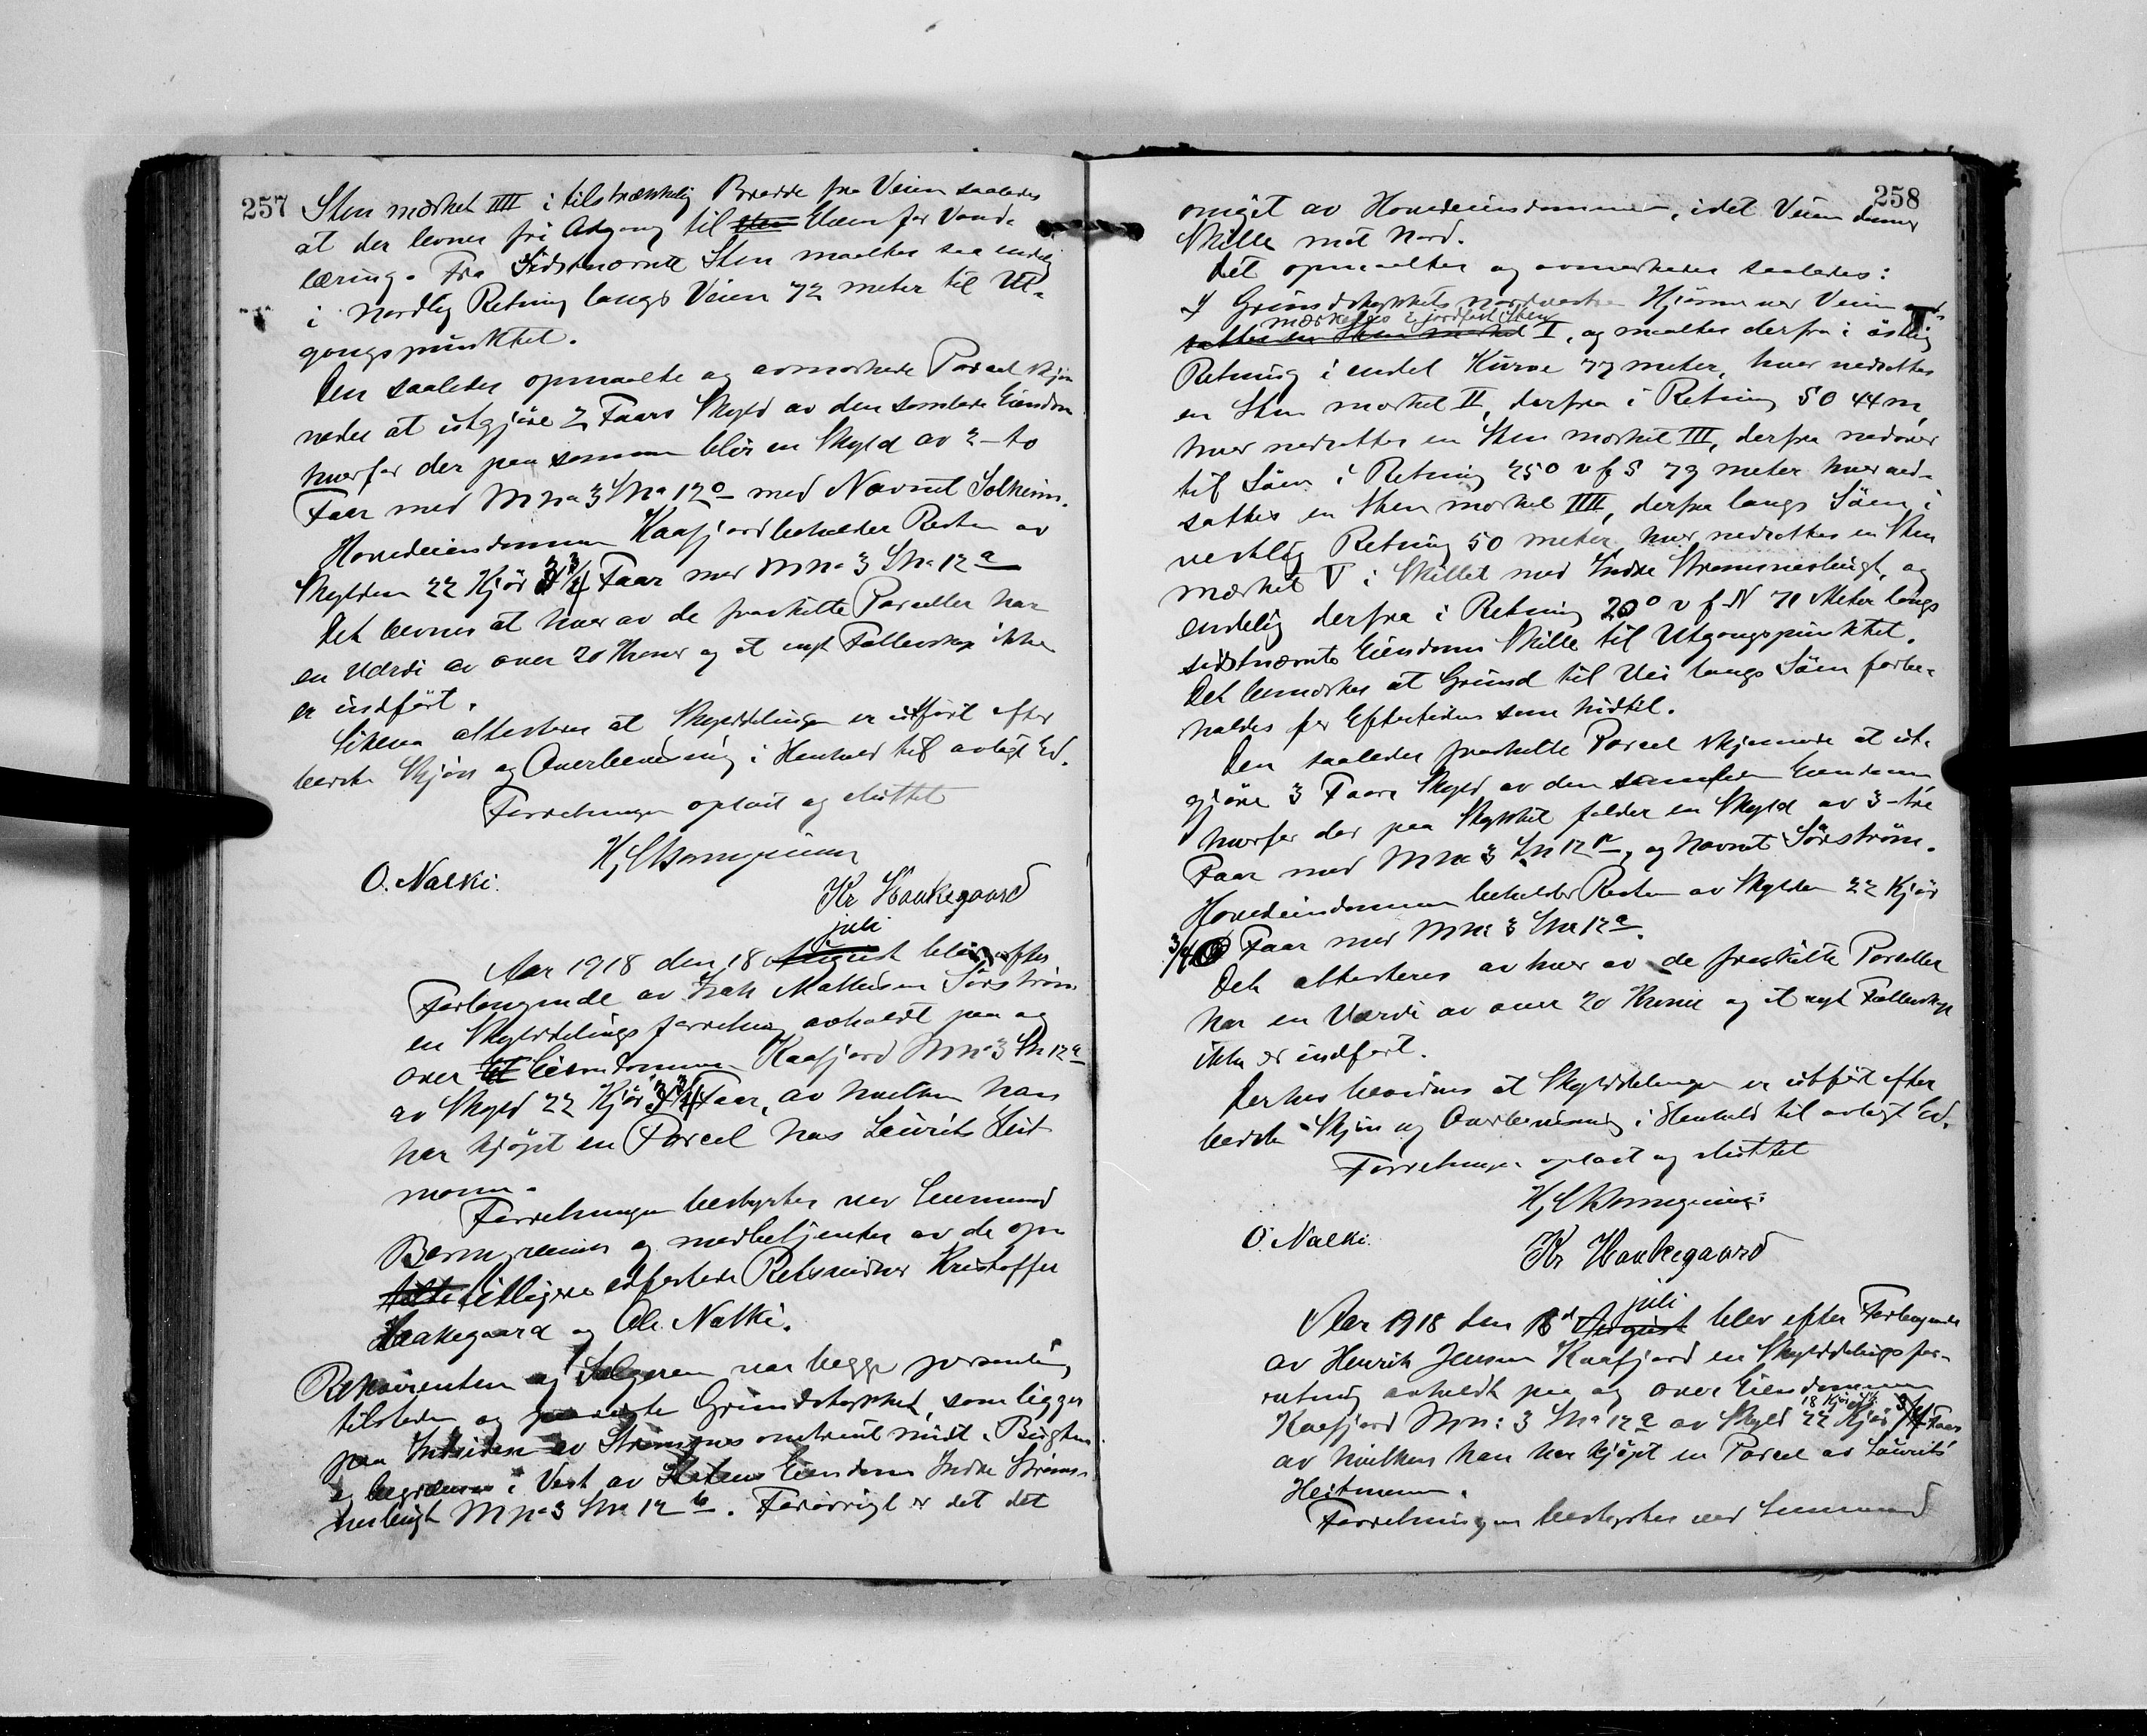 257
Sten mærket IIII i tilstrækkelig Bredde fra Veien saaledes
at der levnes fri Adgang til Elven for Vand-
læring. Fra Sidstnævnte Sten maaltes saa endelig
i nordlig Retning langs Veien 72 meter til Ut-
gangspunktet.
Den saaledes opmaalte og avmerkede Parcel skjøn
nedes at utgjøre 2 Faars Skyld av den samlede Eiendom
hvorfor der paa samme blir en Skyld av 2-to
Faar med M.no 3 L.no 12o med Navnet Solheim.
Hovedeiendommen Kaafjord beholder Resten av
Skylden 22 Kjør 3 3/4 Faar med M.no 3 L.no 12a
Det bevnes at hver av de fraskilte Parceller har
en Værdi av over 20 Kroner og at nyt Fællesskap ikke
er indført.
Likesaa attesteres at Skylddelingen er utført efter
bedste Skjøn og Overbevisning i Henhold til avlagt Ed.
Forretningen oplæst og sluttet
H. J. Borngreiner
O. Nalki.
Kr Haakegaard
juli
Aar 1918 den 18 August blev efter
Forlangende av Isak Mathisen Sørstrøm
en Skylddelingsforretning avholdt paa og
over Eiendommen Kaafjord M.no 3 L.no 12a
av Skyld 22 Kjør 3 3/4 Faar, av hvilken han
har kjøpt en Parcel hos Laurits Heit
mann.
Forretningen bestyrtes ved Lensmand
Borngreiner og medbetjentes av de op
tidligere edfæstede Retsvidner Kristoffer
Haakegaard og Ole Nalki.
Rekvirenten og Selgeren var begge personlig
tilstede og paaviste Grundstykket, som ligger
paa Indsiden av Strømsnes omtrent midt i Bugten
og begrænses i Vest av Statens Eiendom Indre Strøms-
nesbugt M.no 3 L.no 12b. Forøvrigt er det det
258
omgit av Hovedeiendommen, idet Veien danner
Skille mot Nord.
Det opmaaltes og avmerkedes saaledes:
I Grundstykkets nordvestre Hjørne ved Veien
mærkedes i jordfast Sten
sattes en Sten merket I, og maaltes derfra i østlig
Retning i endel Kurve 77 meter, hvor nedsattes
en Sten merket II, derfra i Retning SO 44 m,
hvor nedsattes en Sten merket III, derfra nedover
til Søen i Retning 25o v f S 79 meter hvor ned-
sattes en Sten merket IIII, derfra langs Søen i
vestlig Retning 50 meter hvor nedsattes en Sten
mærket V i Skillet med Indre Strømsnesbugt, og
endelig derfra i Retning 20o v f N 71 Meter langs
sidstnævnte Eiendoms Skille til Utgangspunktet.
Det bemerkes at Grund til Vei langs Søen forbe-
holdes for Eftertiden som hidtil.
Den saaledes fraskilte Parcel skjønnedes at ut-
gjøre 3 Faars Skyld av den samlede Eiendom
hvorfor der paa Stykket falder en Skyld av 3-tre
Faar med M.no 3 L.no 12p, og Navnet Sørstrøm.
Hovedeiendommen beholder Resten av Skylden 22 Kjør
3/4 Faar med M.no 3 L.no 12a.
Det attesteres av hver av de fraskilte Parceller
har en Værdi av over 20 Kroner og at nyt Fællesskap
ikke er indført.
Derhos bevidnes at Skylddelingen er utført efter
bedste Skjøn og Overbevisning i Henhold til avlagt Ed.
Forretningen oplæst og sluttet
H. J. Borngreiner
O. Nalki.
Kr Haakegaard
juli
Aar 1918 den 18d August blev efter Forlangende
av Henrik Jensen Kaafjord en Skylddelingsfor-
retning avholdt paa og over Eiendommen
Kaafjord M.no 3 L.no 12a av Skyld 22 Kjør 3/4 Faar
av hvilken han har kjøpt en Parcel av Laurits
Heitmann.
Forretningen bestyrtes ved Lensmand